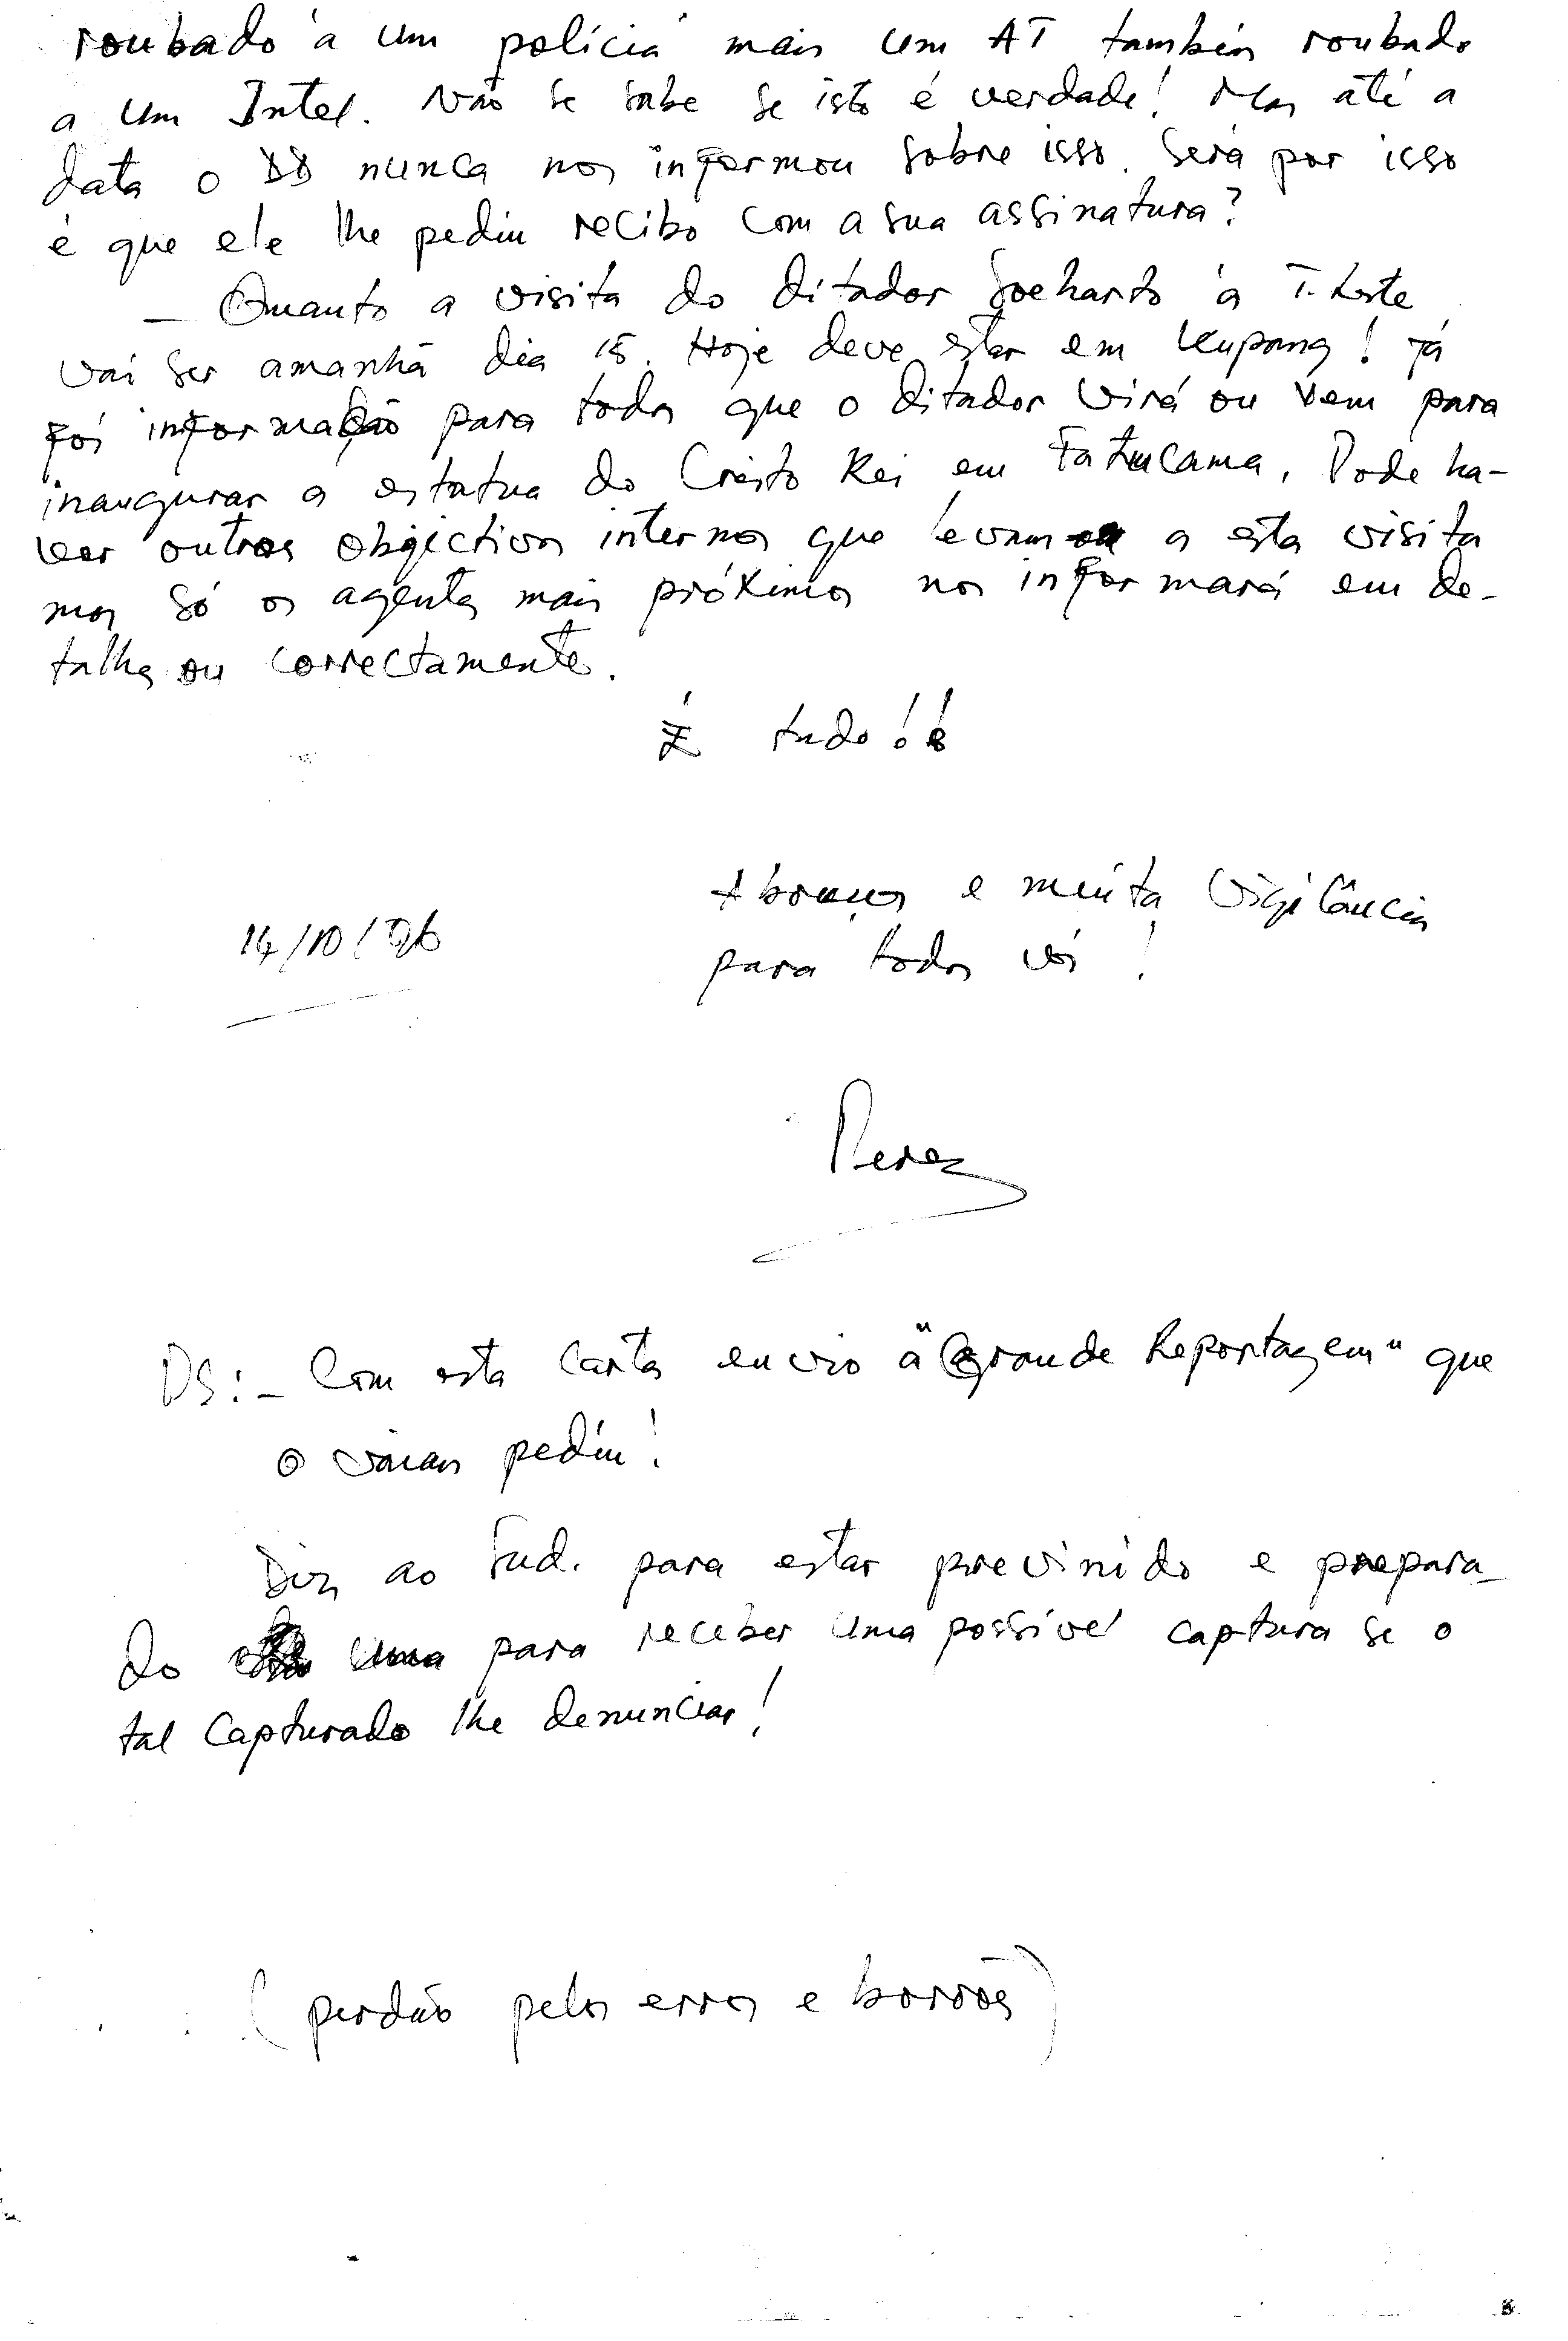 roubado a um polícia mais um AT também roubado
a um Intel. Não se sabe se isto é verdade! Mas até a
data o DD nunca nos informou sobre isso. Será por isso
é que ele lhe pediu recibo com a sua assinatura?
— Quanto a visita do ditador Soeharto à T. Leste
vai ser amanhã dia 15. Hoje deve estar em Kupang! Já
foi informação para todos que o ditador virá ou vem para
inaugurar a estatua do Cristo Rei em Fatucama. Pode ha-
ver outros objectivos internos que levam a esta visita
mas só os agentes mais próximos nos informará em de-
talhe ou correctamente.
É tudo!!
Abraços e muita vigilância
14/10/96
para todos vós!
Perez
PS:- Com esta carta envio a "Grande Reportagem" que
o pediu!
Diz ao Sud. para estar previnido e prepara-
do uma para receber uma possível captura se o
tal capturado lhe denunciar!
(perdão pelos erros e borrões)